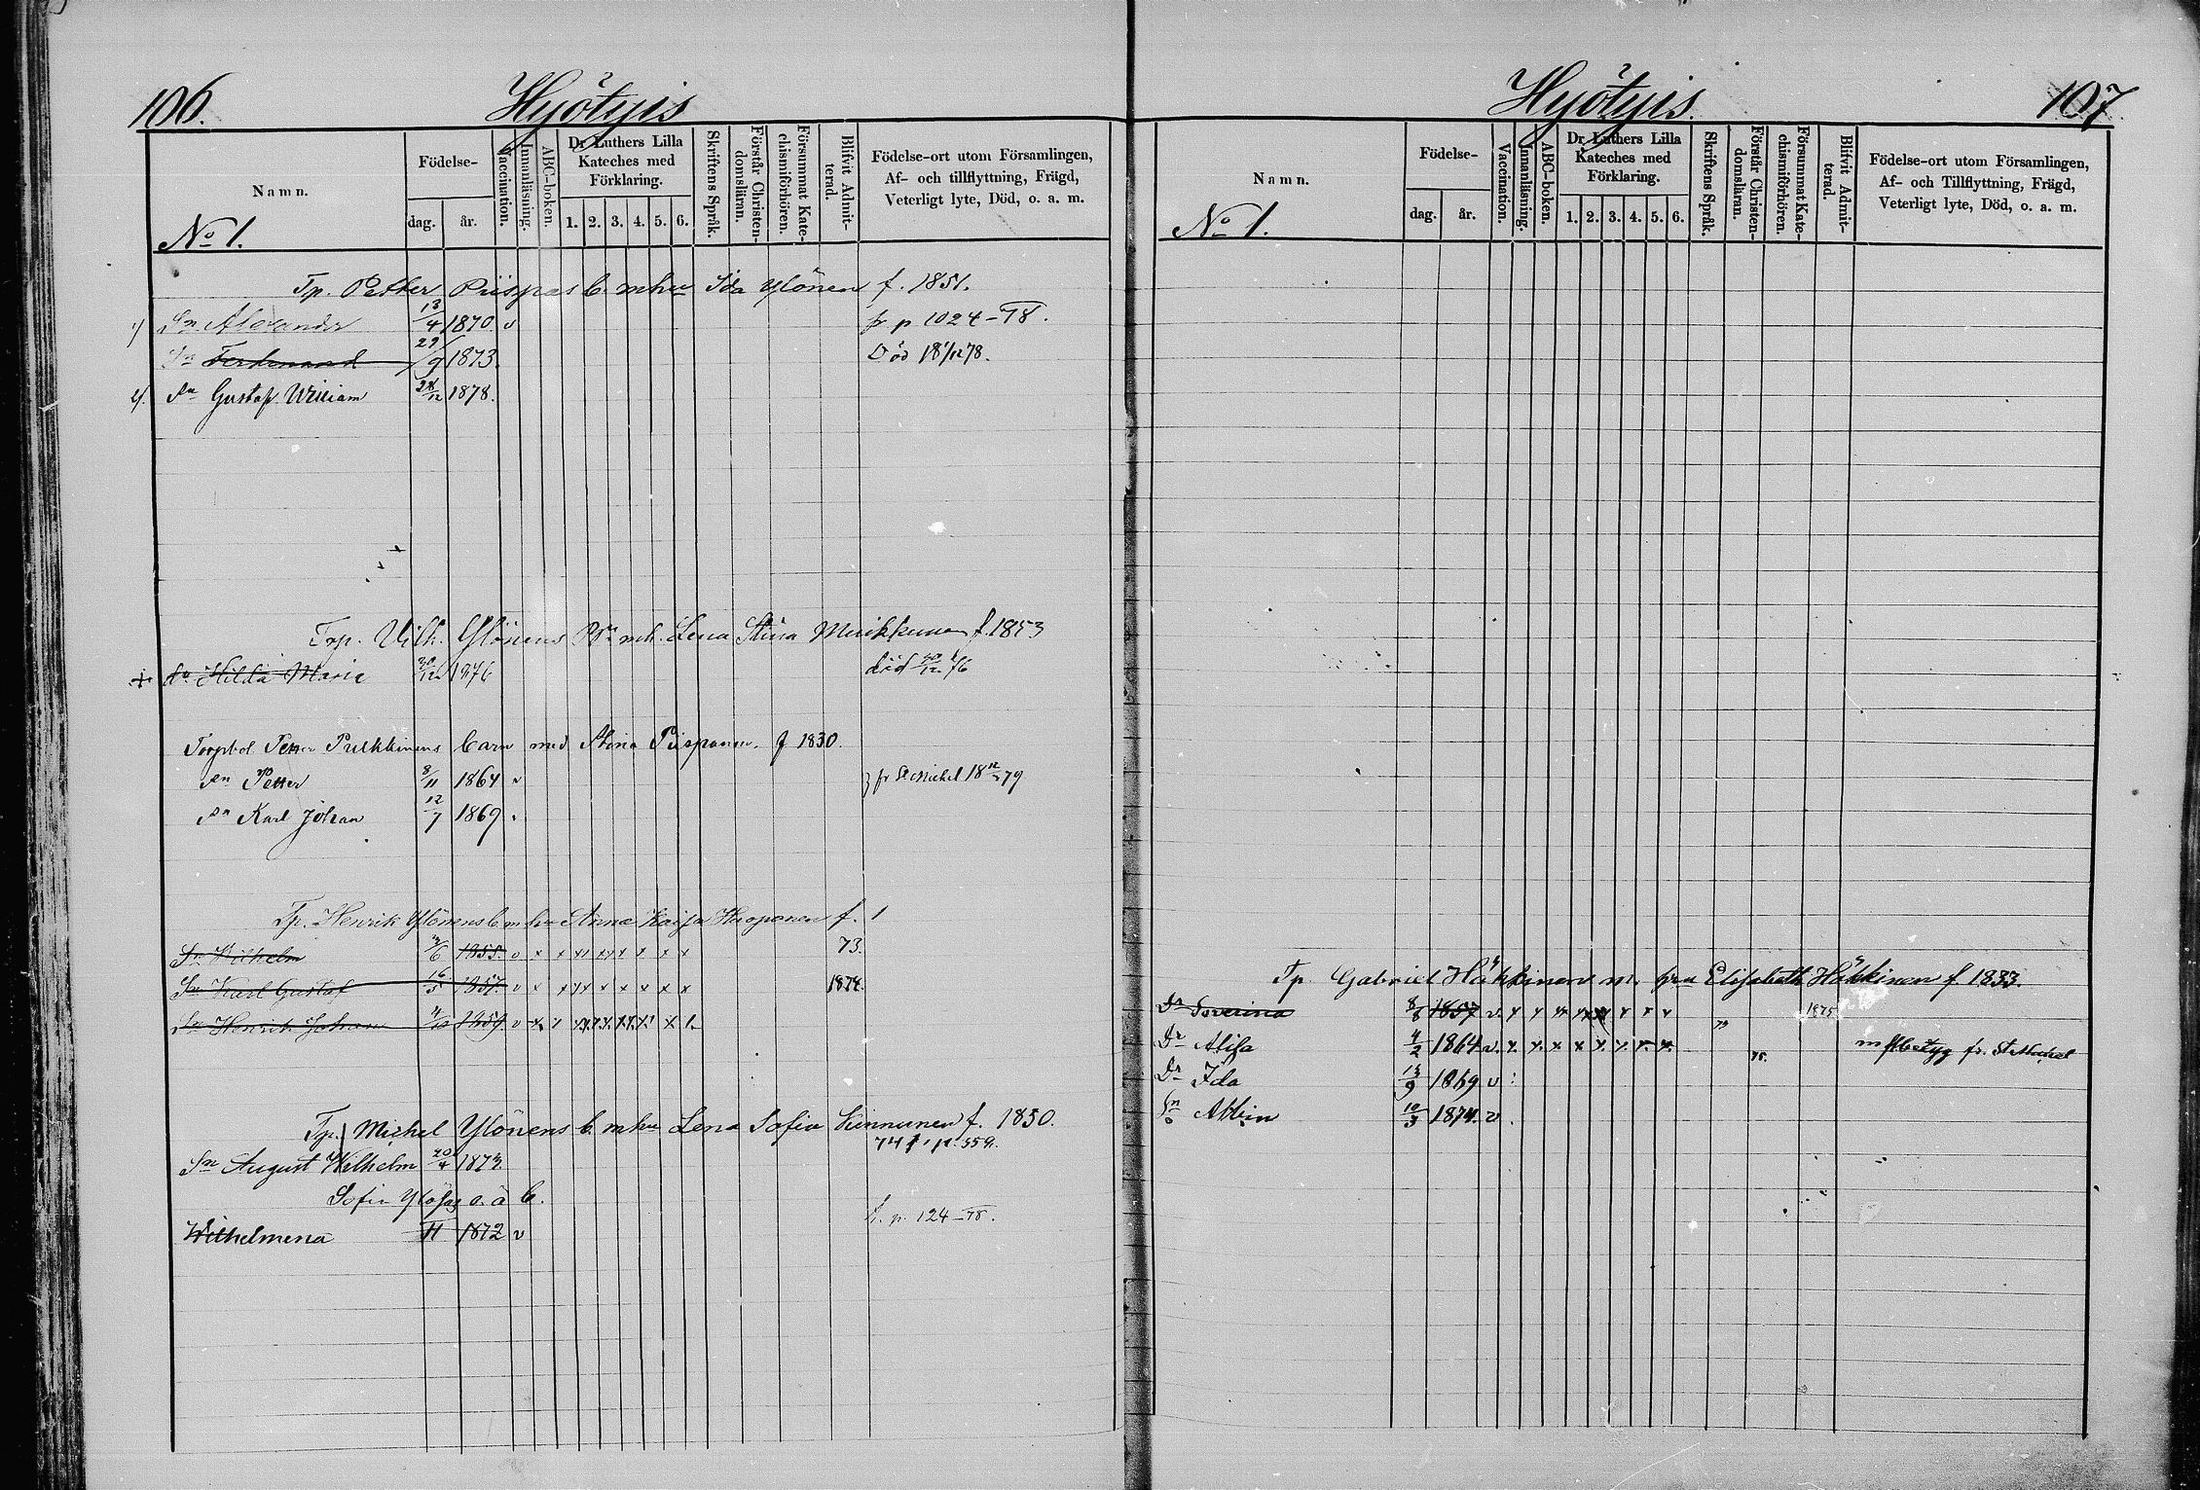 106.
Hyötyis
Namn.
Födelse-
dag.
år.
Vaccination.
Innanläsning.
ABC-boken.
Dr Luthers Lilla
Kateches med
Förklaring.
1. 2. 3. 4. 5. 6.
Skriftens Språk.
Förstår Christen-
domsläran.
Försummat Kate-
chismiförhören.
Blifvit Admit-
terad.
Födelse-ort utom Församlingen,
Af- och tillflyttning, Frägd,
Veterligt lyte, Död, o. a. m.
No 1.
Tp. Petter Piispas b. m hu Ida Ylönen f. 1851.
1) Sn Alexander 13/4 1870. v fr p 1024-78.
Sn Ferdinand 29/9 1873. Död 18 1/12 78.
2). Sn Gustaf William 28/12 1878.
Trp. Vilh. Ylönens Lena Stina f. 1853
Hilda Maria 1876 död 76
Petter Pulkkinens barn med Stina Piispanen. f 1830.
Sn Petter 8/11 1864 v fr St Michel 18 79
Sn Karl Johan 12/7 1869
Tp. Henrik Ylönens b m hu Anna Kaisa f. 1
Sn Wilhelm 1855. v x x x x x x x 73.
Sn Karl Gustaf 16/5 1857. v x x x x x x x x 1874.
Sn Henrik Johan 1859. v x
Tp. Michel Ylönens b. m hu Lena Sofia Kinnunen f. 1850.
Sn August Wilhelm 20/4 1873. 74 p. 359.
Sofia o. ä b.
Wilhelmena 11 1872 v p. 124-78.
Hyötyis.
107.
Namn.
Födelse-
dag.
år.
Vaccination.
Innanläsning.
ABC-boken.
Dr Luthers Lilla
Kateches med
Förklaring.
1. 2. 3. 4. 5. 6.
Skriftens Språk.
Förstår Christen-
domsläran.
Försummat Kate-
chismiförhören.
Blifvit Admit-
terad.
Födelse-ort utom Församlingen,
Af- och Tillflyttning, Frägd,
Veterligt lyte, Död, o. a. m.
No 1.
Tp. Gabriel Häkkinens m. hu Elisabeth Häkkinen f. 1833.
Dr Severina 8/8 1857 v. x x x x x x x x 1875
Dr Alisa 4/2 1864 v. x. x. x x x. x. x. x. 75. m flbetyg fr. St Michel
Dr Ida 13/9 1869 v
Sn Albin 10/3 1874. v.